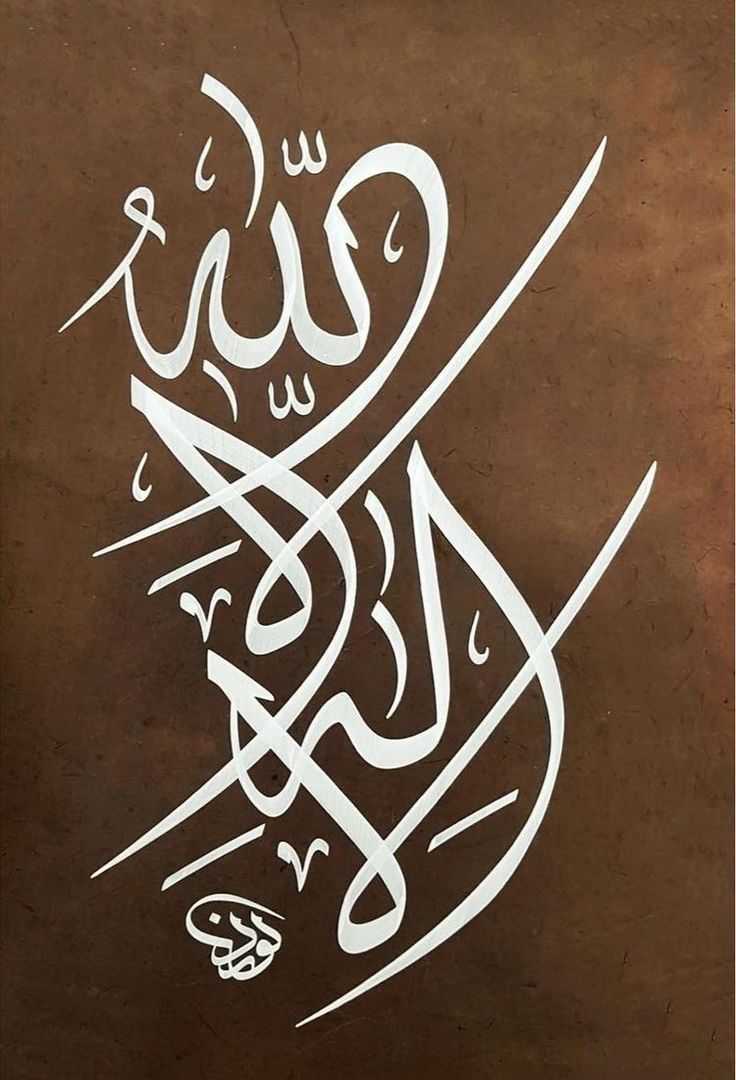 لا إله إلا اللهُ